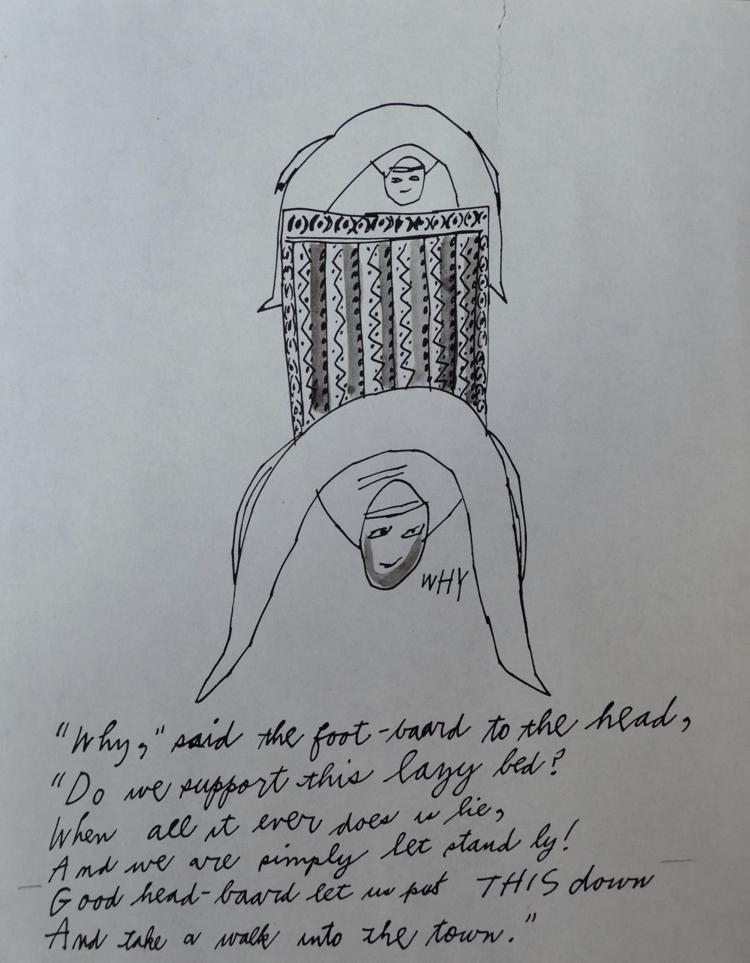 WHY
"Why," said the foot-board to the head,
"Do we support this lazy bed?
When all it ever does is lie,
And we are simply let stand ly!
Good head-board let us put THIS down
And take a walk into the town."